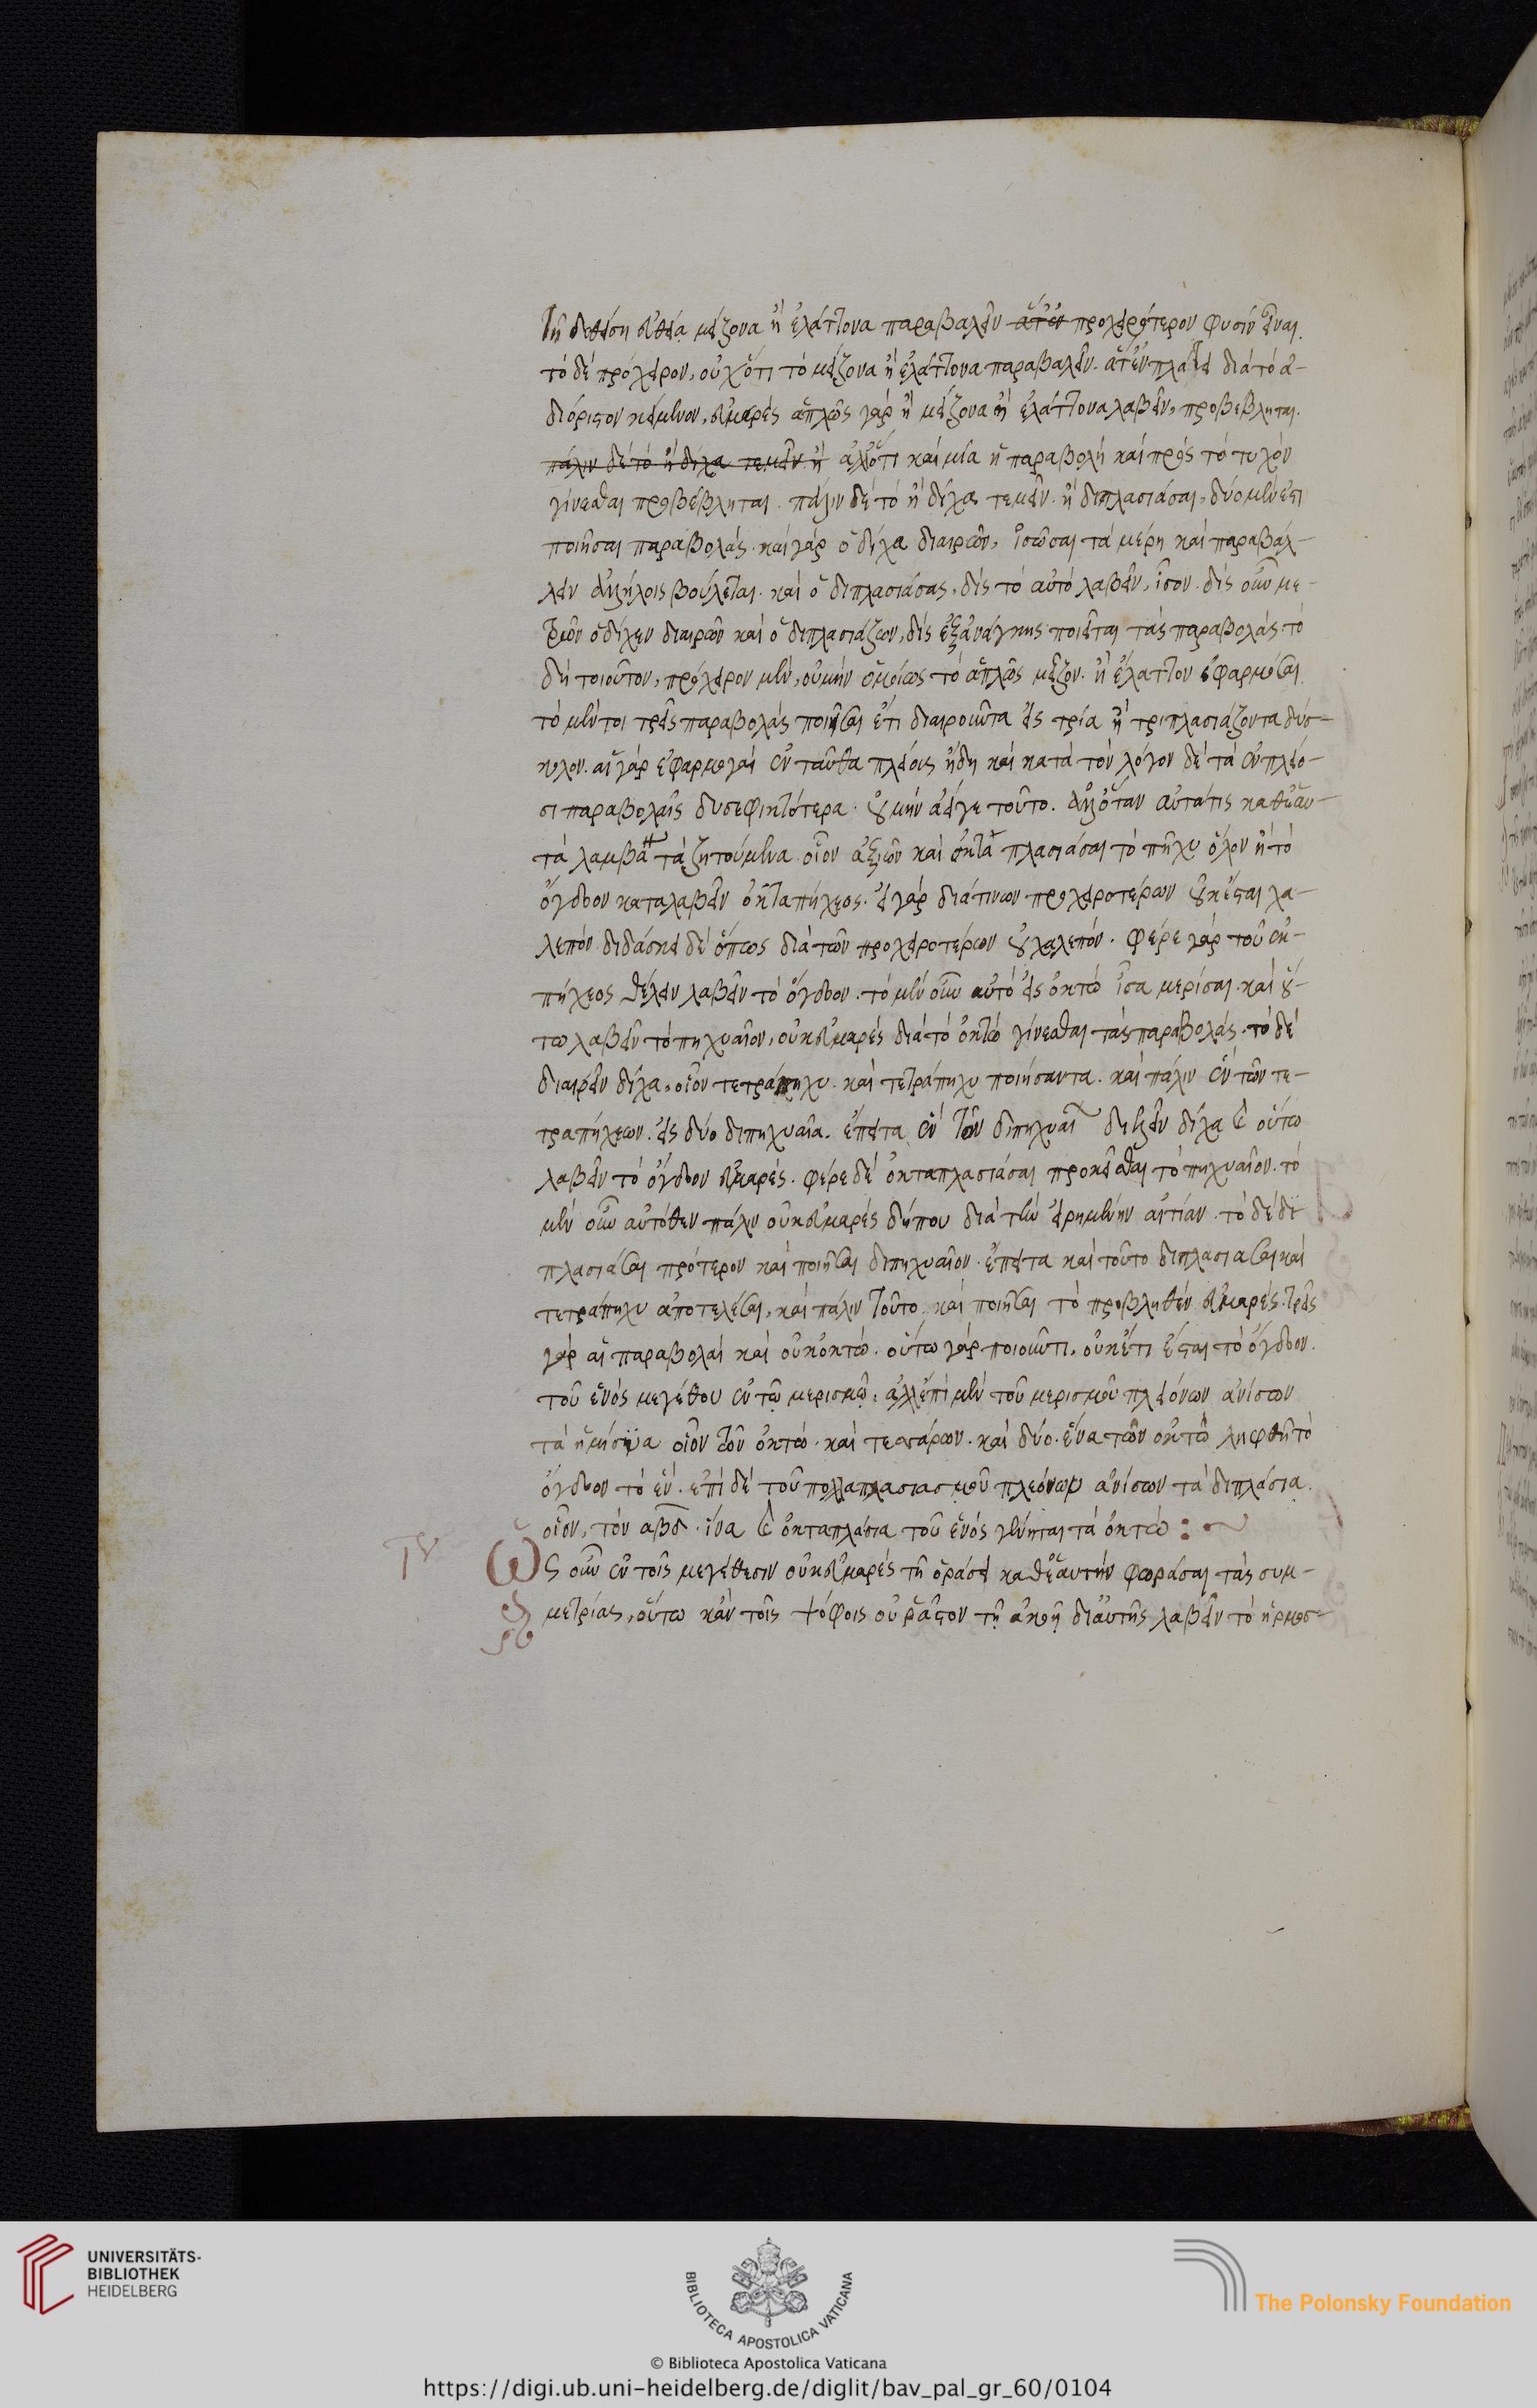 τῇ δὲ θέσῃ εὐθεῖα μείζονα ἢ ἐλάττονα παραβαλεῖν ἅτ' ἐν προχειρότερον φυσὶν εἶναι.
τὸ δὲ πρόχειρον, οὐχ ὅτι τὸ μείζονα ἢ ἐλάττονα παραβαλεῖν. διὰ τὸ ἀ-
διόριστον κείμενον, εὐμαρές ἁπλῶς γὰρ ἢ μείζονα ἢ ἐλάττονα λαβεῖν, προβέβληται.
πάλιν δὲ τὸ ἢ δίχα τεμεῖν ἢ ἀλλ' ὅτι καὶ μία ἡ παραβολὴ καὶ πρὸς τὸ τυχὸν
γίνεσθαι προβέβληται. πάλιν δὲ τὸ ἢ δίχα τεμεῖν. ἢ διπλασιάσαι, δύο μὲν ἔστι
ποιῆσαι παραβολάς. καὶ γὰρ ὁ δίχα διαιρῶν, ἰσῶσαι τὰ μέρη καὶ παραβάλ-
λειν ἀλλήλοις βούλεται. καὶ ὁ διπλασιάσας, δὶς τὸ αὐτὸ λαβεῖν, ἴσον. δὶς οὖν με-
τρῶν ὁ δίχεν διαιρῶν καὶ ὁ διπλασιάζων, δὶς ἐξ ἀνάγκης ποιεῖται τὰς παραβολάς. τὸ
δὴ τοιοῦτον, πρόχειρον μὲν, οὐ μὴν ὁμοίως τὸ ἁπλῶς μεῖζον. ἢ ἔλαττον ἐφαρμόσαι.
τὸ μέντοι τρεῖς παραβολὰς ποιῆσαι ἔτι διαιροῦντα εἰς τρία ἢ τριπλασιάζοντα δύσ-
κολον. αἱ γὰρ ἐφαρμογαὶ ἐνταῦθα πλείους ἤδη καὶ κατὰ τὸν λόγον δὲ τὰ ἐν πλείο-
σι παραβολαῖς δυσεφικτότερα. οὐ μὴν ἀεί γε τοῦτο. ἀλλ' ὅταν αὐτά τις καθ' ἑαυ-
τὰ λαμβάνῃ τὰ ζητούμενα. οἷον ἀξιῶν καὶ ὀκταπλασιάσαι τὸ πῆχυ ὅλον ἢ τὸ
ὄγδοον καταλαβεῖν ὀκταπήχεος. εἰ γὰρ διά τινων προχειροτέρων οὐκ ἔσται χα-
λεπόν. διδάσκει δὲ ὅπως διὰ τῶν προχειροτέρων οὐ χαλεπόν. φέρε γὰρ τοῦ ὀκ-
πήχεος θέλειν λαβεῖν τὸ ὄγδοον. τὸ μὲν οὖν αὐτὸ εἰς ὀκτὼ ἴσα μερίσαι. καὶ οὕ-
τω λαβεῖν τὸ πηχυαῖον, οὐκ εὐμαρές διὰ τὸ ὀκτὼ γίνεσθαι τὰς παραβολάς. τὸ δὲ
διαιρεῖν δίχα, οἷον τετράπηχυ. καὶ τετράπηχυ ποιήσαντα. καὶ πάλιν ἓν τῶν τε-
τραπήχεων. εἰς δύο διπηχυαῖα. ἔπειτα ἓν τῶν διπηχυαί διελεῖν δίχα καὶ οὕτω
λαβεῖν τὸ ὄγδοον εὐμαρές. φέρε δὲ ὀκταπλασιάσαι προκεῖσθαι τὸ πηχυαῖον. τὸ
μὲν οὖν αὐτόθεν πάλιν οὐκ εὐμαρές δήπου διὰ τὴν εἰρημένην αἰτίαν. τὸ δὲ δι
πλασιάσαι πρότερον καὶ ποιῆσαι διπηχυαῖον. ἔπειτα καὶ τοῦτο διπλασιάσαι καὶ
τετράπηχυ ἀποτελέσαι, καὶ πάλιν τοῦτο. καὶ ποιῆσαι τὸ προβληθὲν εὐμαρές. τρεῖς
γὰρ αἱ παραβολαὶ καὶ οὐκ ὀκτώ. οὕτω γὰρ ποιοῦντι, οὐκέτι ἔσται τὸ ὄγδοον.
τοῦ ἑνὸς μεγέθου ἐν τῷ μερισμῷ. ἀλλ' ἐπὶ μὲν τοῦ μερισμοῦ πλειόνων ἀνίσων
τὰ ἡμίσηα οἷον τῶν ὀκτώ. καὶ τεσσάρων. καὶ δύο. ἵνα τῶν ὀκτὼ ληφθῇ τὸ
ὄγδοον τὸ ἕν. ἐπὶ δὲ τοῦ πολλαπλασιασμοῦ πλεόνων ἀνίσων τὰ διπλάσια.
οἷον, τὸν αβδ. ἵνα καὶ ὀκταπλάσια τοῦ ἑνὸς γένηται τὰ ὀκτώ :~
Ὡς οὖν ἐν τοῖς μεγέθεσιν οὐκ εὐμαρές τῇ ὁράσει καθ' ἑαυτὴν φωράσαι τὰς συμ-
μετρίας, οὕτω κἀν τοῖς ψόφοις οὐ ῥᾷστον τῇ ἀκοῇ δι' αὐτῆς λαβεῖν τὸ ἡρμοσ-
UNIVERSITÄTS-
BIBLIOTHEK
HEIDELBERG
BIBLIOTECA APOSTOLICA VATICANA
The Polonsky Foundation
© Biblioteca Apostolica Vaticana
https://digi.ub.uni-heidelberg.de/diglit/bav_pal_gr_60/0104